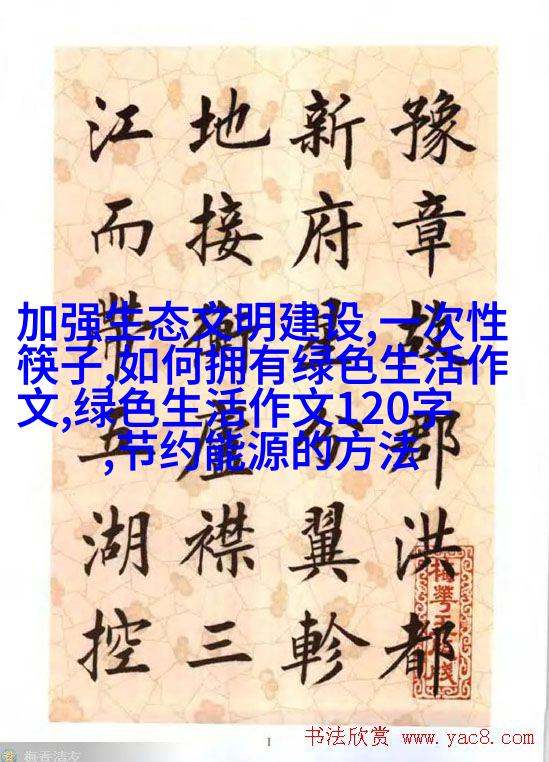 豫章故郡洪都
新府星分翼軫
地接衡廬襟三
江而帶五湖控
加强生态文明建设,一次性
筷子,如何拥有绿色生活作
文,绿色生活作文120字
,节约能源的方法
1
书法欣赏 www.yac8.com